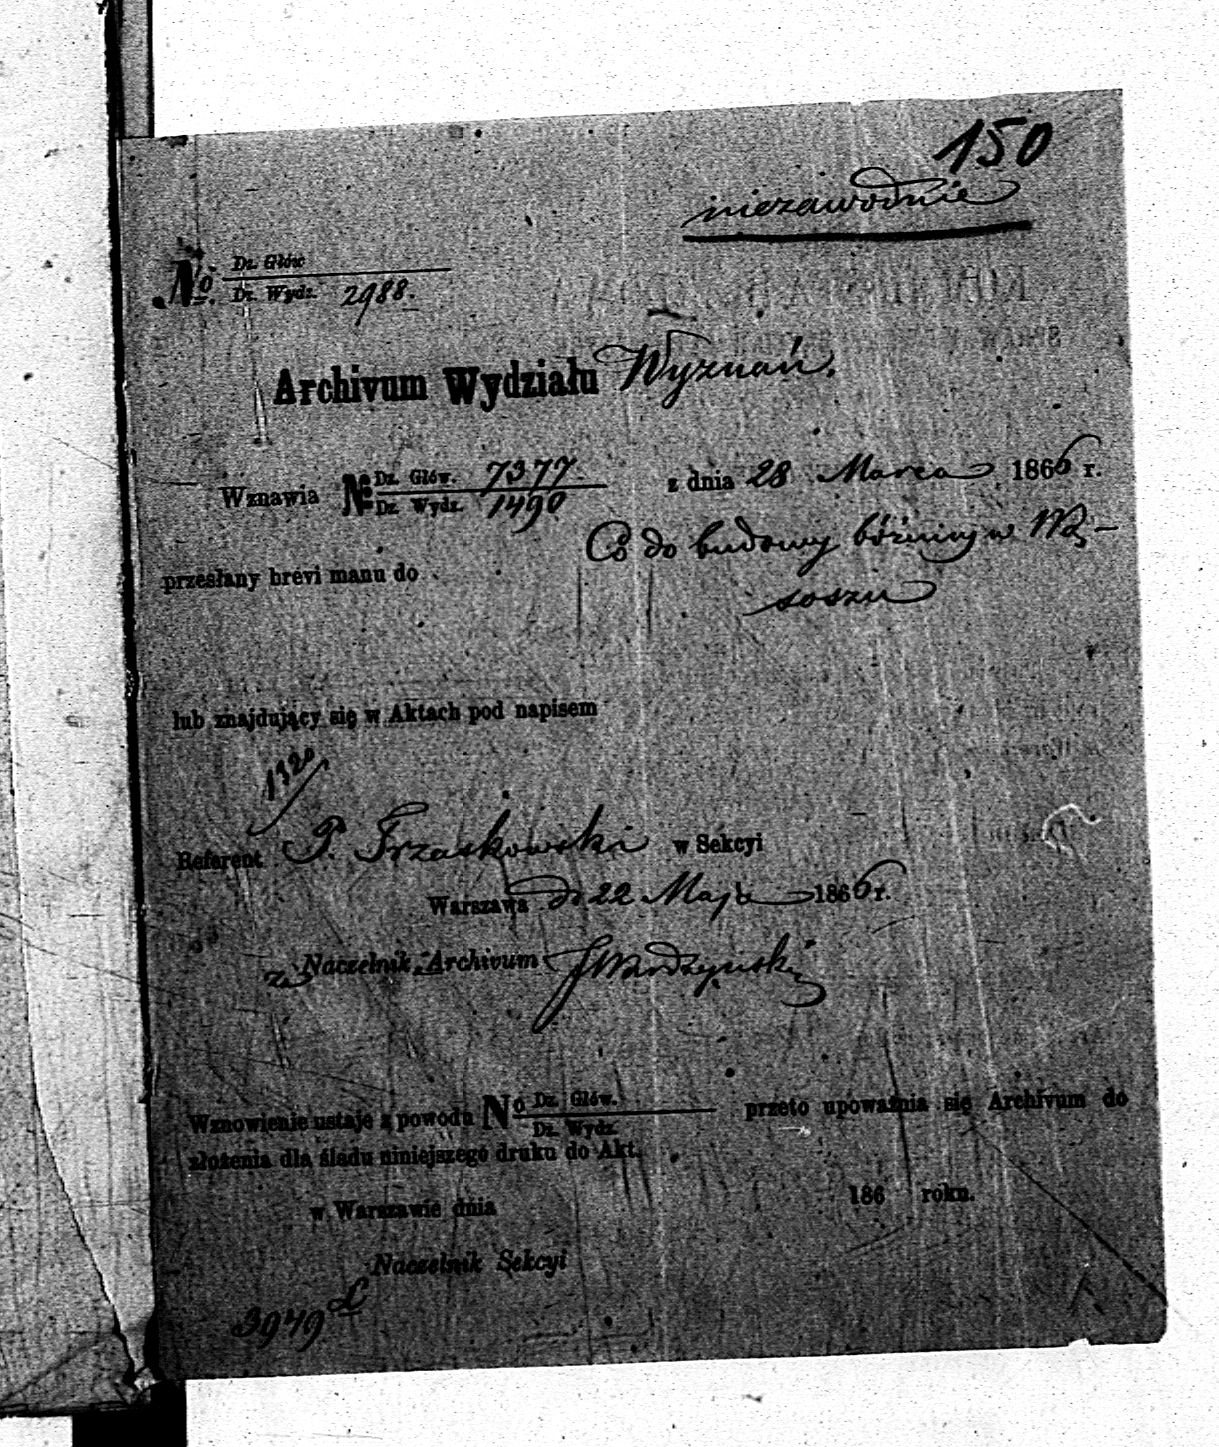 150
niezawodnie
No. Dz. Głów
Dz. Wydz. 2988.
Archivum Wydziału Wyznań.
Wznawia № Dz. Głów. 7377 z dnia 28 Marca 1866 r.
Dz. Wydz. 1490
Co do budowy bóżnicy w Wą-
przesłany brevi manu do
soszu
lub znajdujący się w Aktach pod napisem
1320
Referent P. Trzaskowski w Sekcyi
Warszawa d. 22 Maja 1866 r.
za Naczelnik Archivum
Wznowienie ustaje z powodu No Dz. Głów. przeto upoważnia się Archivum do
Dz. Wydz.
złożenia dla śladu niniejszego druku do Akt.
w Warszawie dnia 186 roku.
Naczelnik Sekcyi
3949